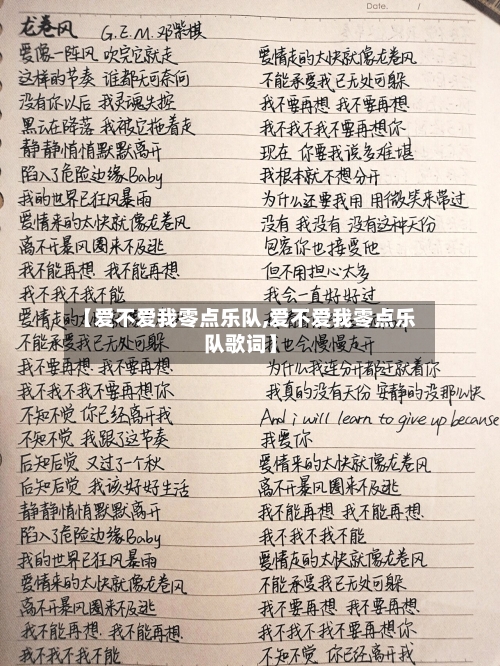 Date.
龙卷风 G.E.M.邓紫棋
爱像一阵风 吹完它就走
这样的节奏 谁都无可奈何
没有你以后 我灵魂失控
黑云在降落 我被它拖着走
静静悄悄默默离开
陷入了危险边缘Baby
我的世界已狂风暴雨
爱情来的太快就像龙卷风
离不开暴风圈来不及逃
我不能再想 我不能再想
我不我不我不能
爱情走的
不能承受我已无处可躲
我不要再想 我不要再想
我不我不我不要再想你
不知不觉 你已经离开我
不知不觉 我跟了这节奏
后知后觉 又过了个秋
后知后觉 我该好好生活
静静悄悄默默离开
陷入了危险边缘Baby
我的世界已狂风暴雨
爱情来的太快就像龙卷风
离不开暴风圈来不及逃
我不能再想 我不能再想
我不我不我不能
爱情走的太快就像龙卷风
不能承受我已无处可躲
我不要再想 我不要再想
我不我不我不要再想你
现在 你要我说多难堪
我根本就不想分开
为什么还要我用 用微笑来带过
没有 我没有 没有这种天份
包容你也接受他
但不用担心太多
我会一直好好过
【爱不爱我零点乐队,爱不爱我零点乐
队歌词】
也会慢慢走开
为什么我连分开都迁就着你
我真的没有天份 安静的没那么快
And i will learn to give up because
我爱你
爱情来的太快就像龙卷风
离不开暴风圈来不及逃
我不能再想 我不能再想
我不我不我不能
爱情走的太快就像龙卷风
不能承受我已无处可躲
我不要再想 我不要再想
我不我不我不要再想你
不知不觉 你已经离开我